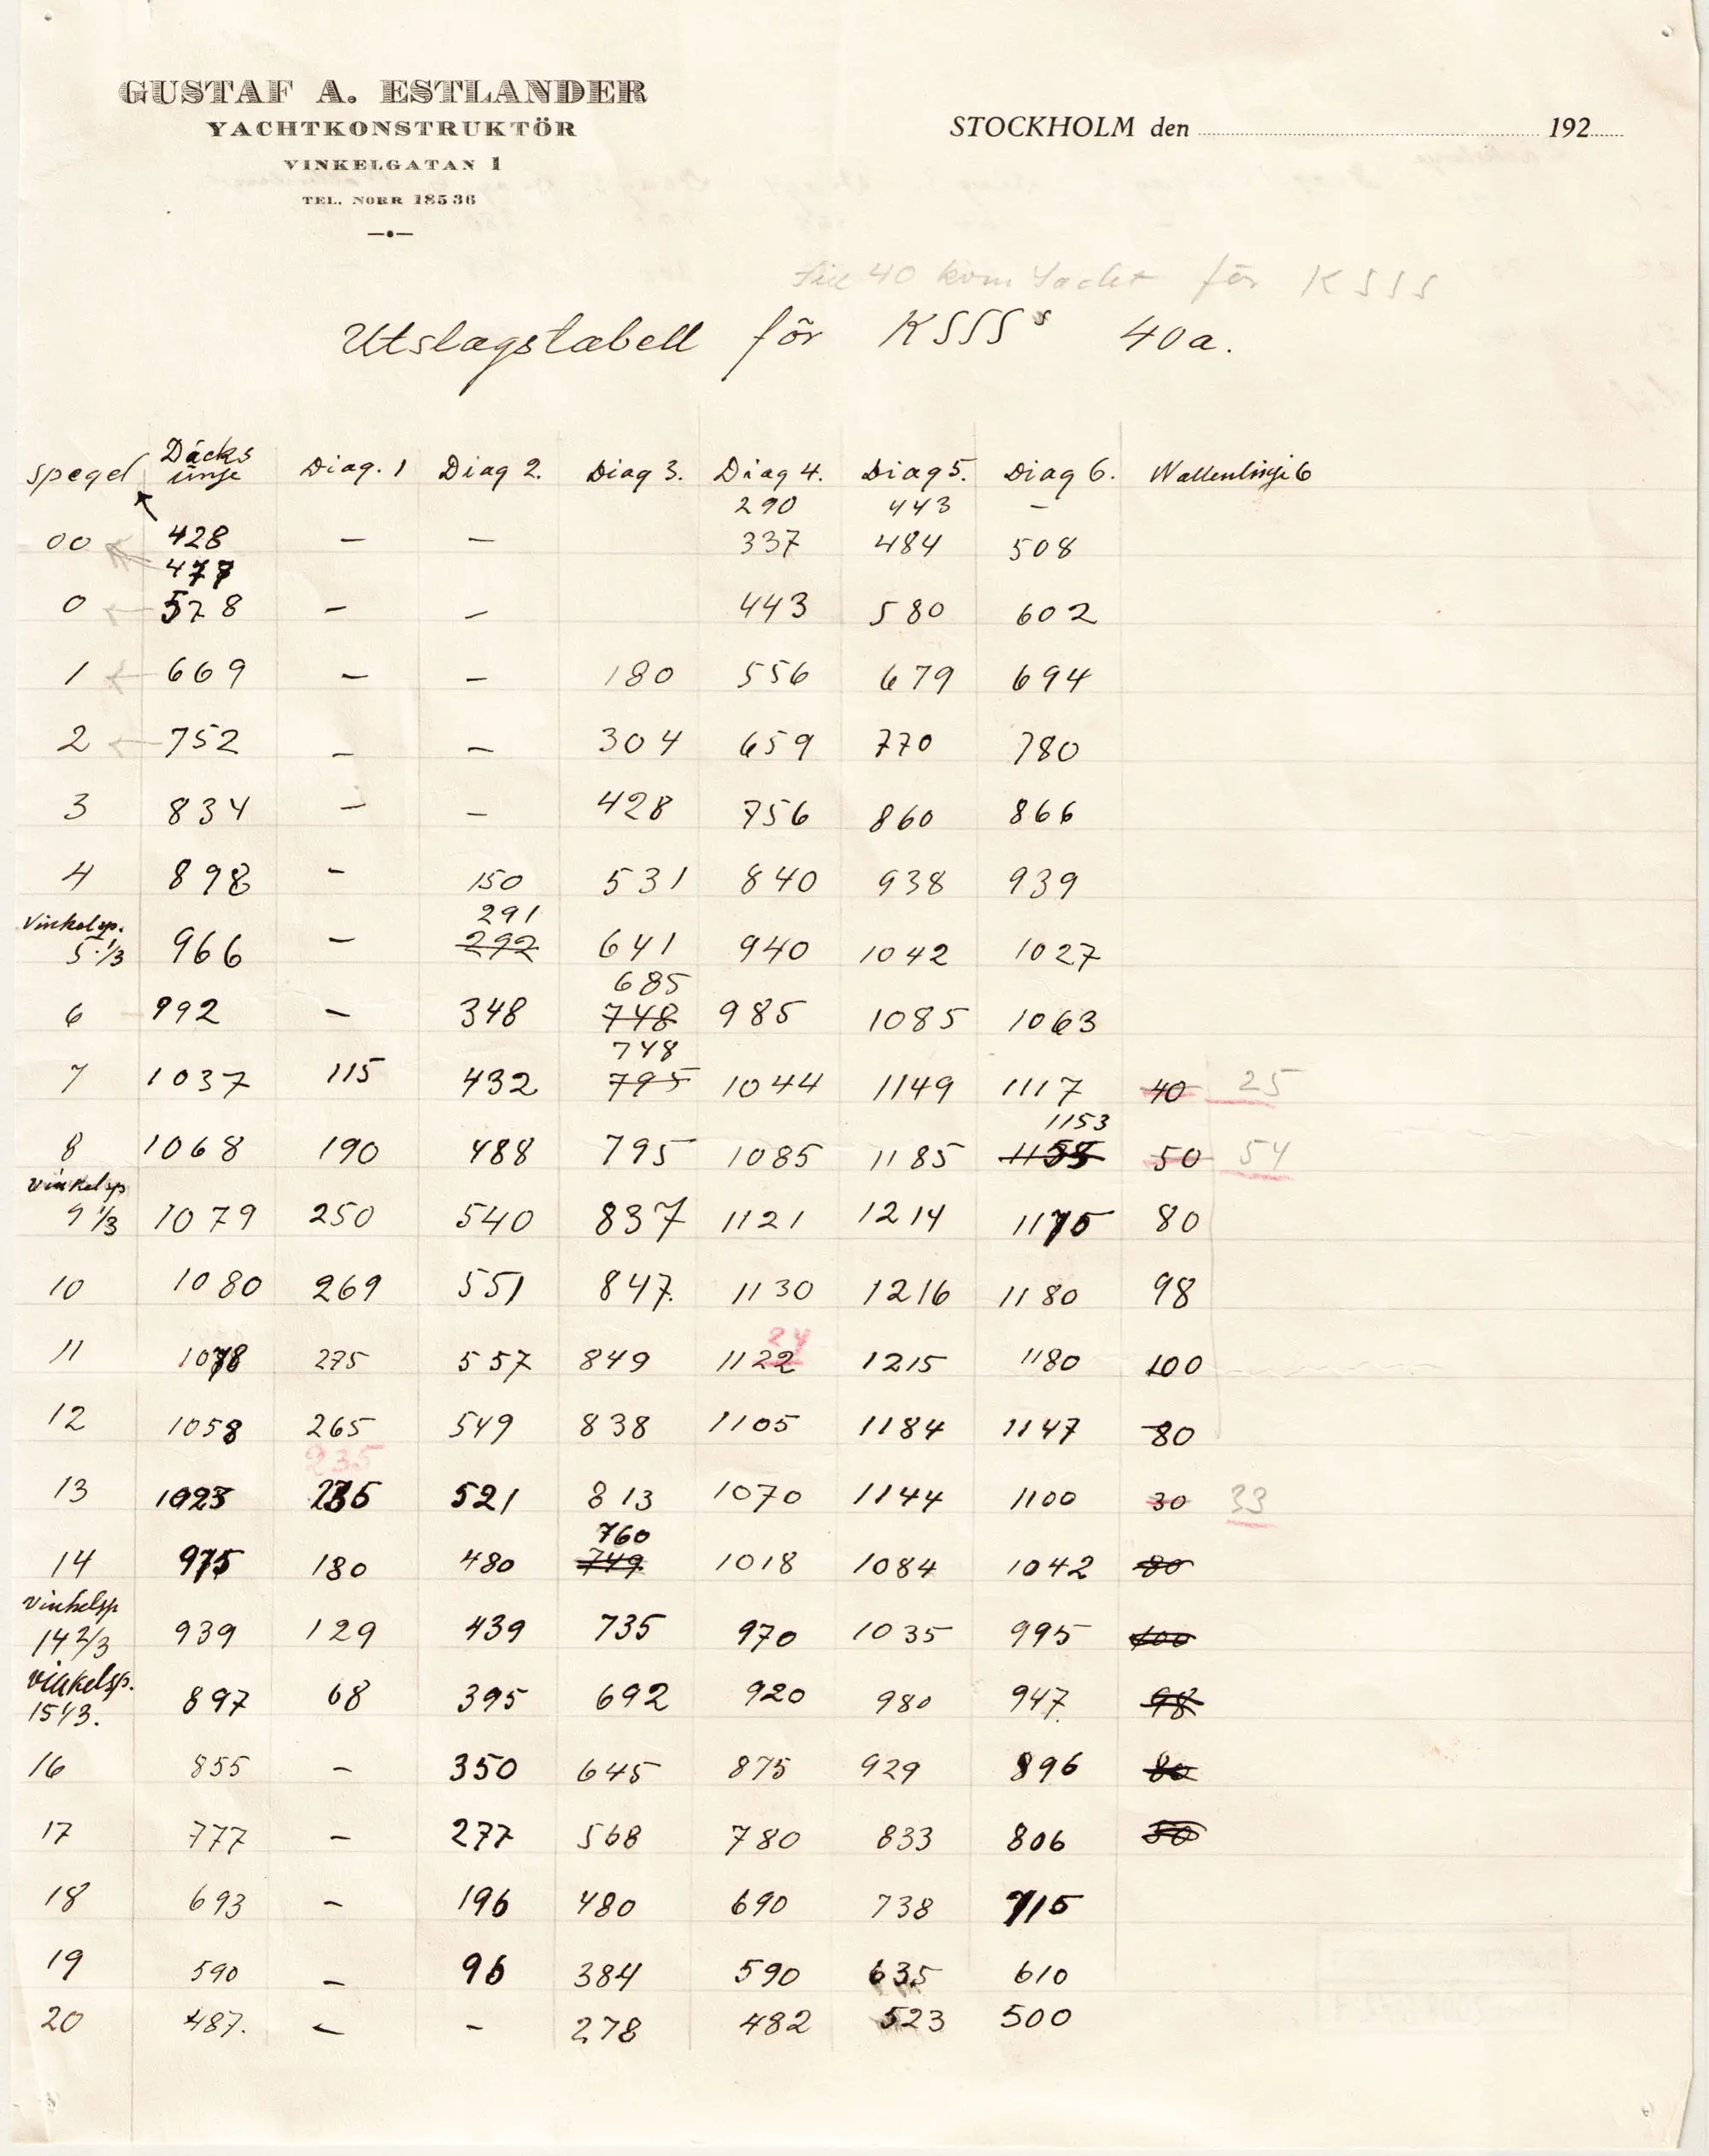 GUSTAF A. ESTLANDER
YACHTKONSTRUKTÖR
STOCKHOLM den 192
VINKELGATAN 1
TEL. NORR 185 36
40 kvm Yacht för KSSS
Utslagstabell för KSSSs 40a.
spegel Däcks linje Diag. 1 Diag 2. Diag 3. Diag 4. Diag 5. Diag 6. Wattenlinje 6
290 443 -
00 428 - - 337 484 508
477
0 578 - - 443 580 602
1 669 - - 180 556 679 694
2 752 - - 304 659 770 780
3 834 - - 428 756 860 866
4 898 - 150 531 840 938 939
Vinkelsp. 291
5 1/3 966 - 292 641 940 1042 1027
685
6 992 - 348 748 985 1085 1063
748
7 1037 115 432 795 1044 1149 1117 40 25
1153
8 1068 190 488 795 1085 1185 50 54
Vinkelsp
9 1/3 1079 250 540 837 1121 1214 1175 80
10 1080 269 551 847. 1130 1216 1180 98
24
11 1078 275 557 849 1122 1215 1180 100
12 1058 265 549 838 1105 1184 1147 80
235
13 1023 235 521 813 1070 1144 1100 30 33
760
14 975 180 480 749 1018 1084 1042 80
Vinkelsp
14 2/3 939 129 439 735 970 1035 995 100
Vinkelsp.
15 1/3. 897 68 395 692 920 980 947. 98
16 855 - 350 645 875 929 896 80
17 777 - 277 568 780 833 806 50
18 693 - 196 480 690 738 715
19 590 - 96 384 590 635 610
20 487. - - 278 482 523 500